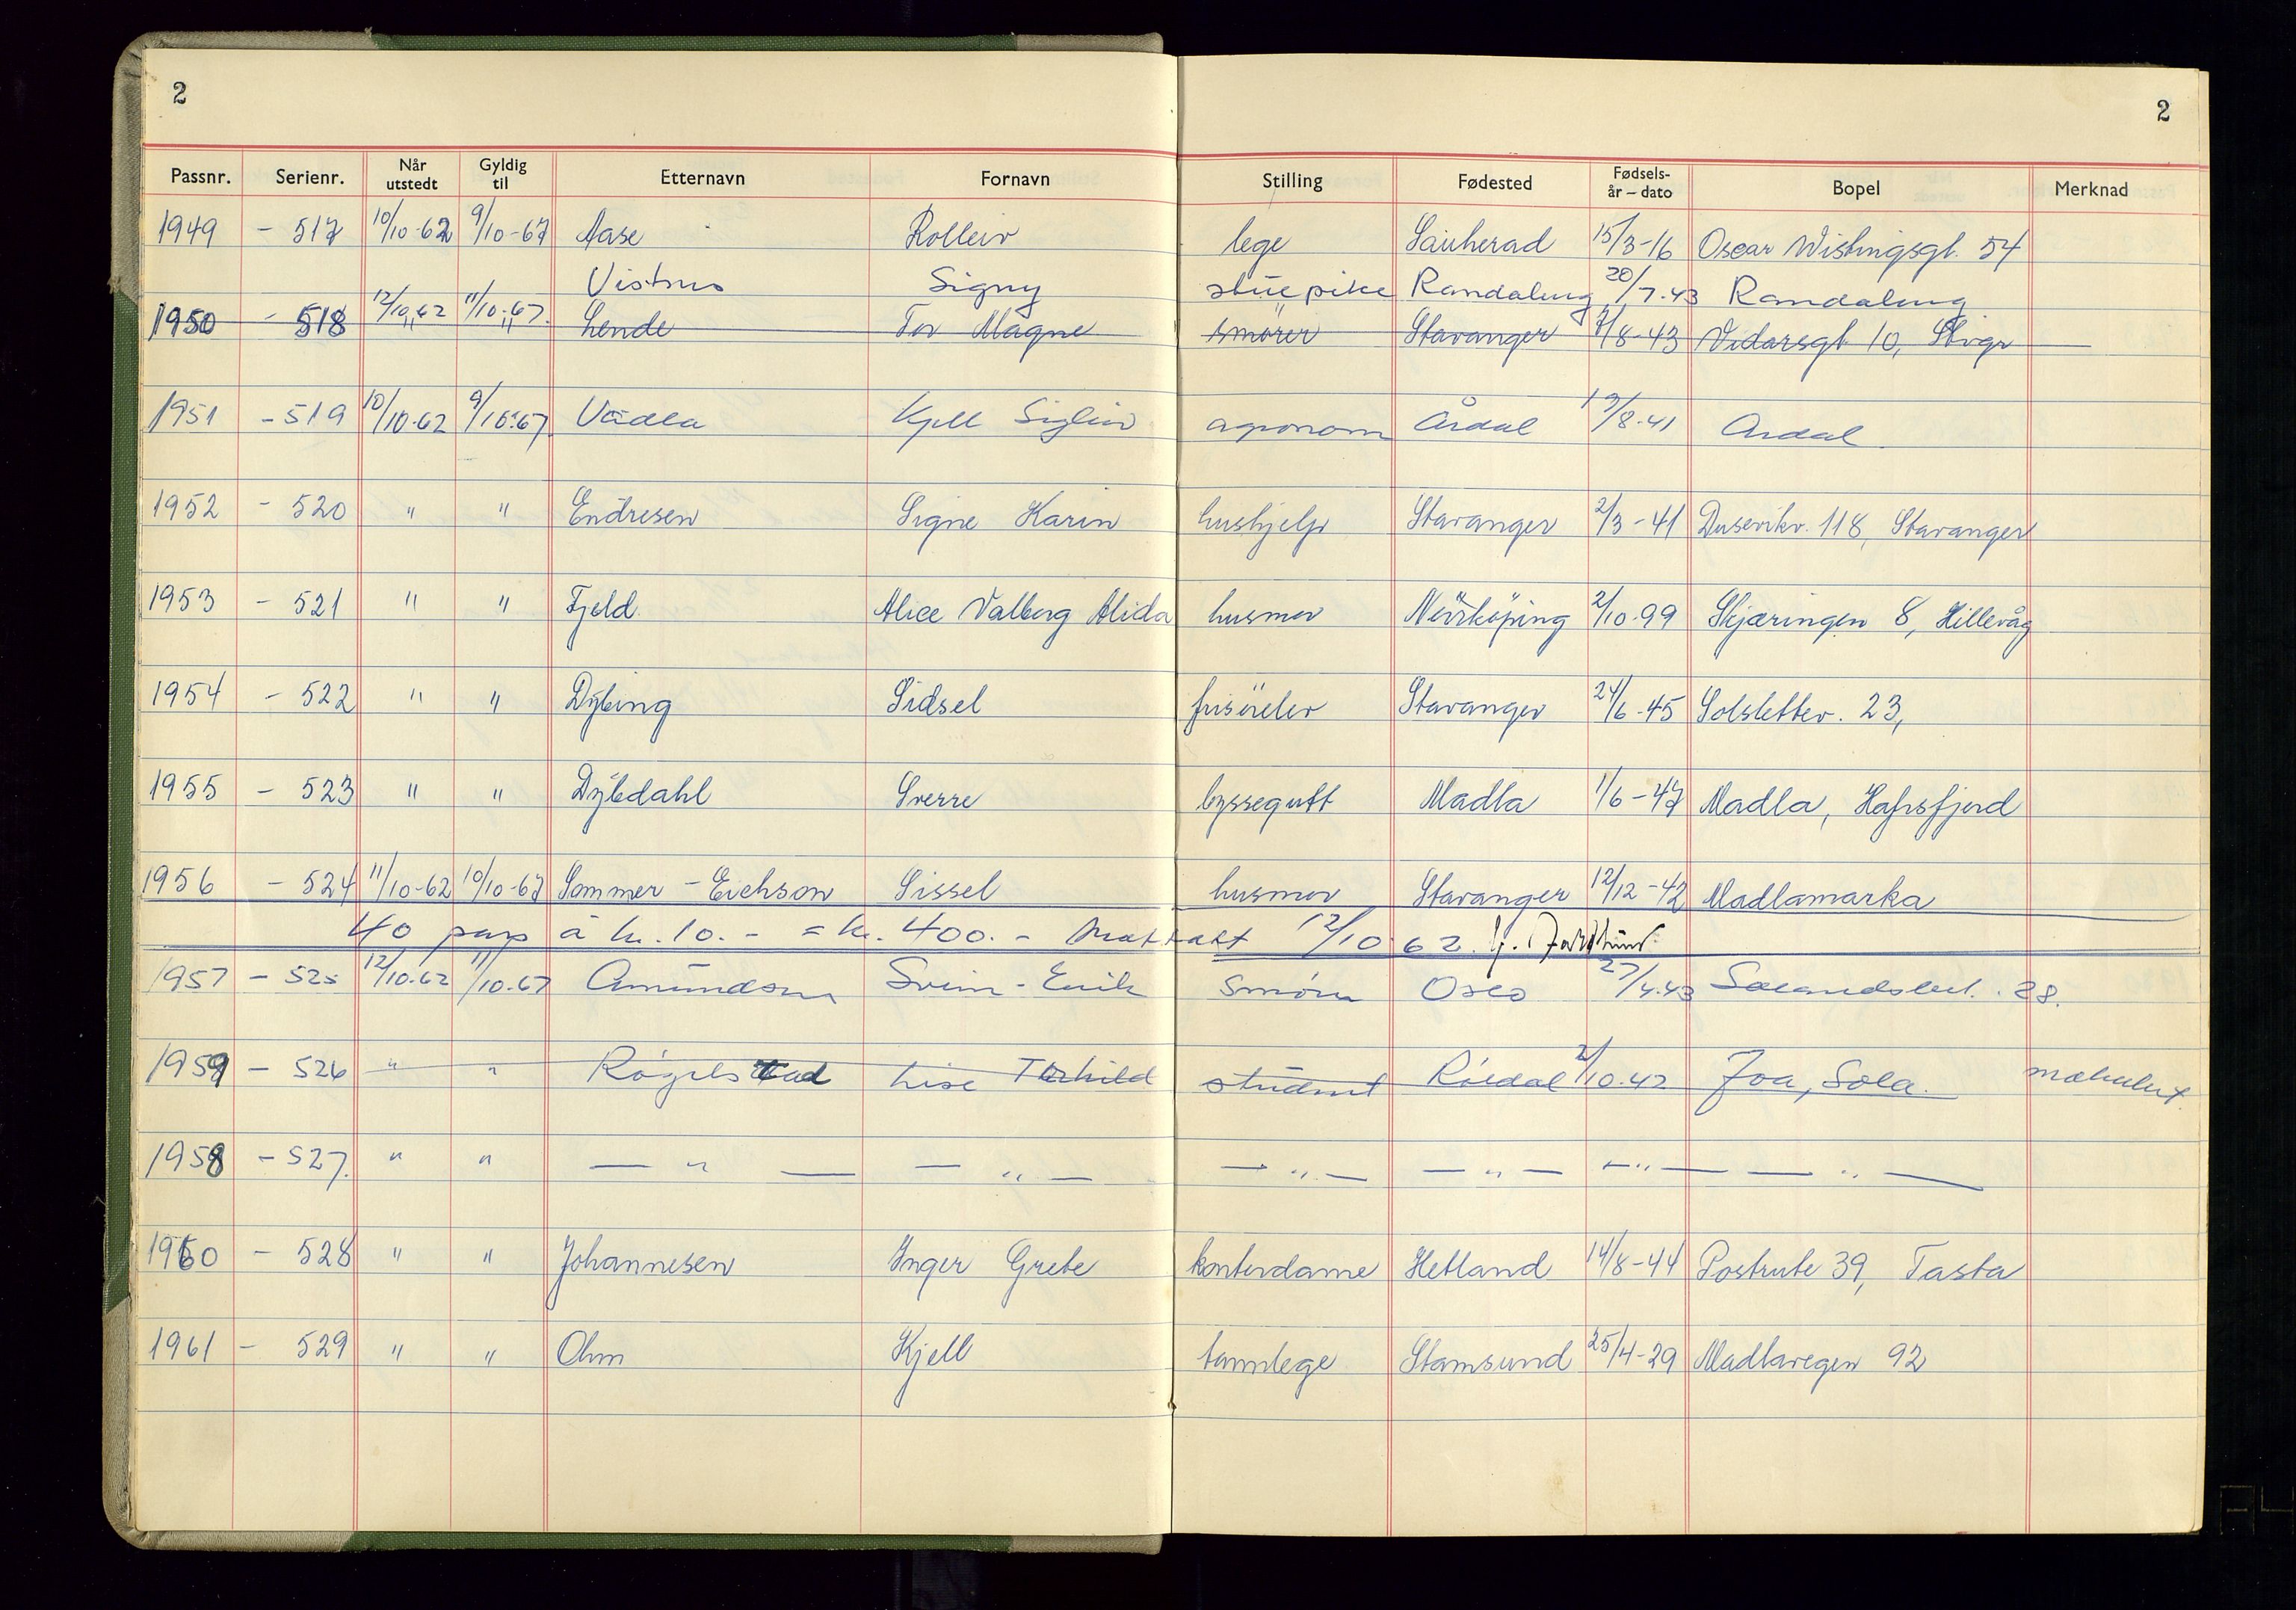 2 2
Passnr. Serienr. Når utstedt Gyldig til Etternavn Fornavn Stilling Fødested Fødsels- år – dato Bopel Merknad
1949 - 517 10/10-62 9/10-67 Aase Rolleiv lege Sauherad 15/3-16 Oscar Wistingsgt. 54
12/10.62 11/10.67. Vistnes Signy stuepike Randaberg 20/7.43 Randaberg
1950 - 518 " " Lende Tor Magne smører Stavanger 8-43 Vidarsgt 10, Stvgr
1951 - 519 10/10-62 9/10-67 Vadla Kjell Sigleiv agronom Årdal 19/8-41 Årdal
1952 - 520 " " Endresen Signe Karin hushjelp Stavanger 2/3-41 Dusevikv. 118, Stavanger
1953 - 521 " " Fjeld Alice Valborg Alida husmor Norrköping 2/10-99 Skjæringen 8, Hillevåg
1954 - 522 " " Dybing Sidsel frisørelev Stavanger 24/6-45 Solslettev. 23,
1955 - 523 " " Dybdahl Sverre byssegutt Madla 1/6-47 Madla, Hafrsfjord
1956 - 524 11/10-62 10/10-67 Sommer - Erichson Sissel husmor Stavanger 12/12-42 Madlamarka
40 pass à kr. 10.- = kr. 400.- Mottatt 12/10 62.
1957 - 525 12/10.62 11/10-67 Amundsen Svein-Erik Smører Oslo 27/4.43 28.
1959 - 526 " " Røgelstad Lise Torhild student Røldal 2/10.42 Joa, Sola. makulert
1958 - 527. " " — " — — " — — " — — " — — " — — " —
1960 - 528 " " Johannesen Inger Grete kontordame Hetland 14/8-44 Postrute 39, Tasta
1961 - 529 " " Ohm Kjell tannlege Stamsund 25/4-29 Madlavegen 92